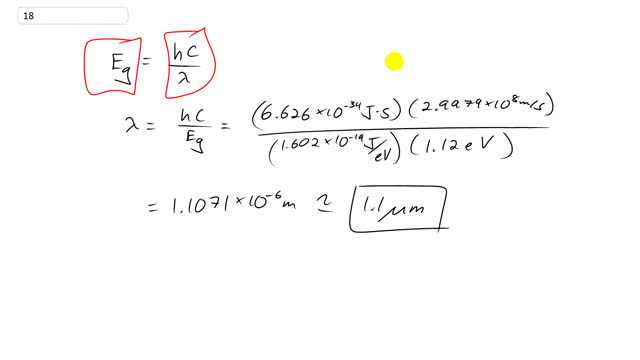 18
E_g = hc/λ
λ = hc/E_g = (6.626×10^-34 J·s)(2.9979×10^8 m/s)/(1.602×10^-19 J/eV)(1.12 eV)
= 1.1071×10^-6 m ≃ 1.1 μm